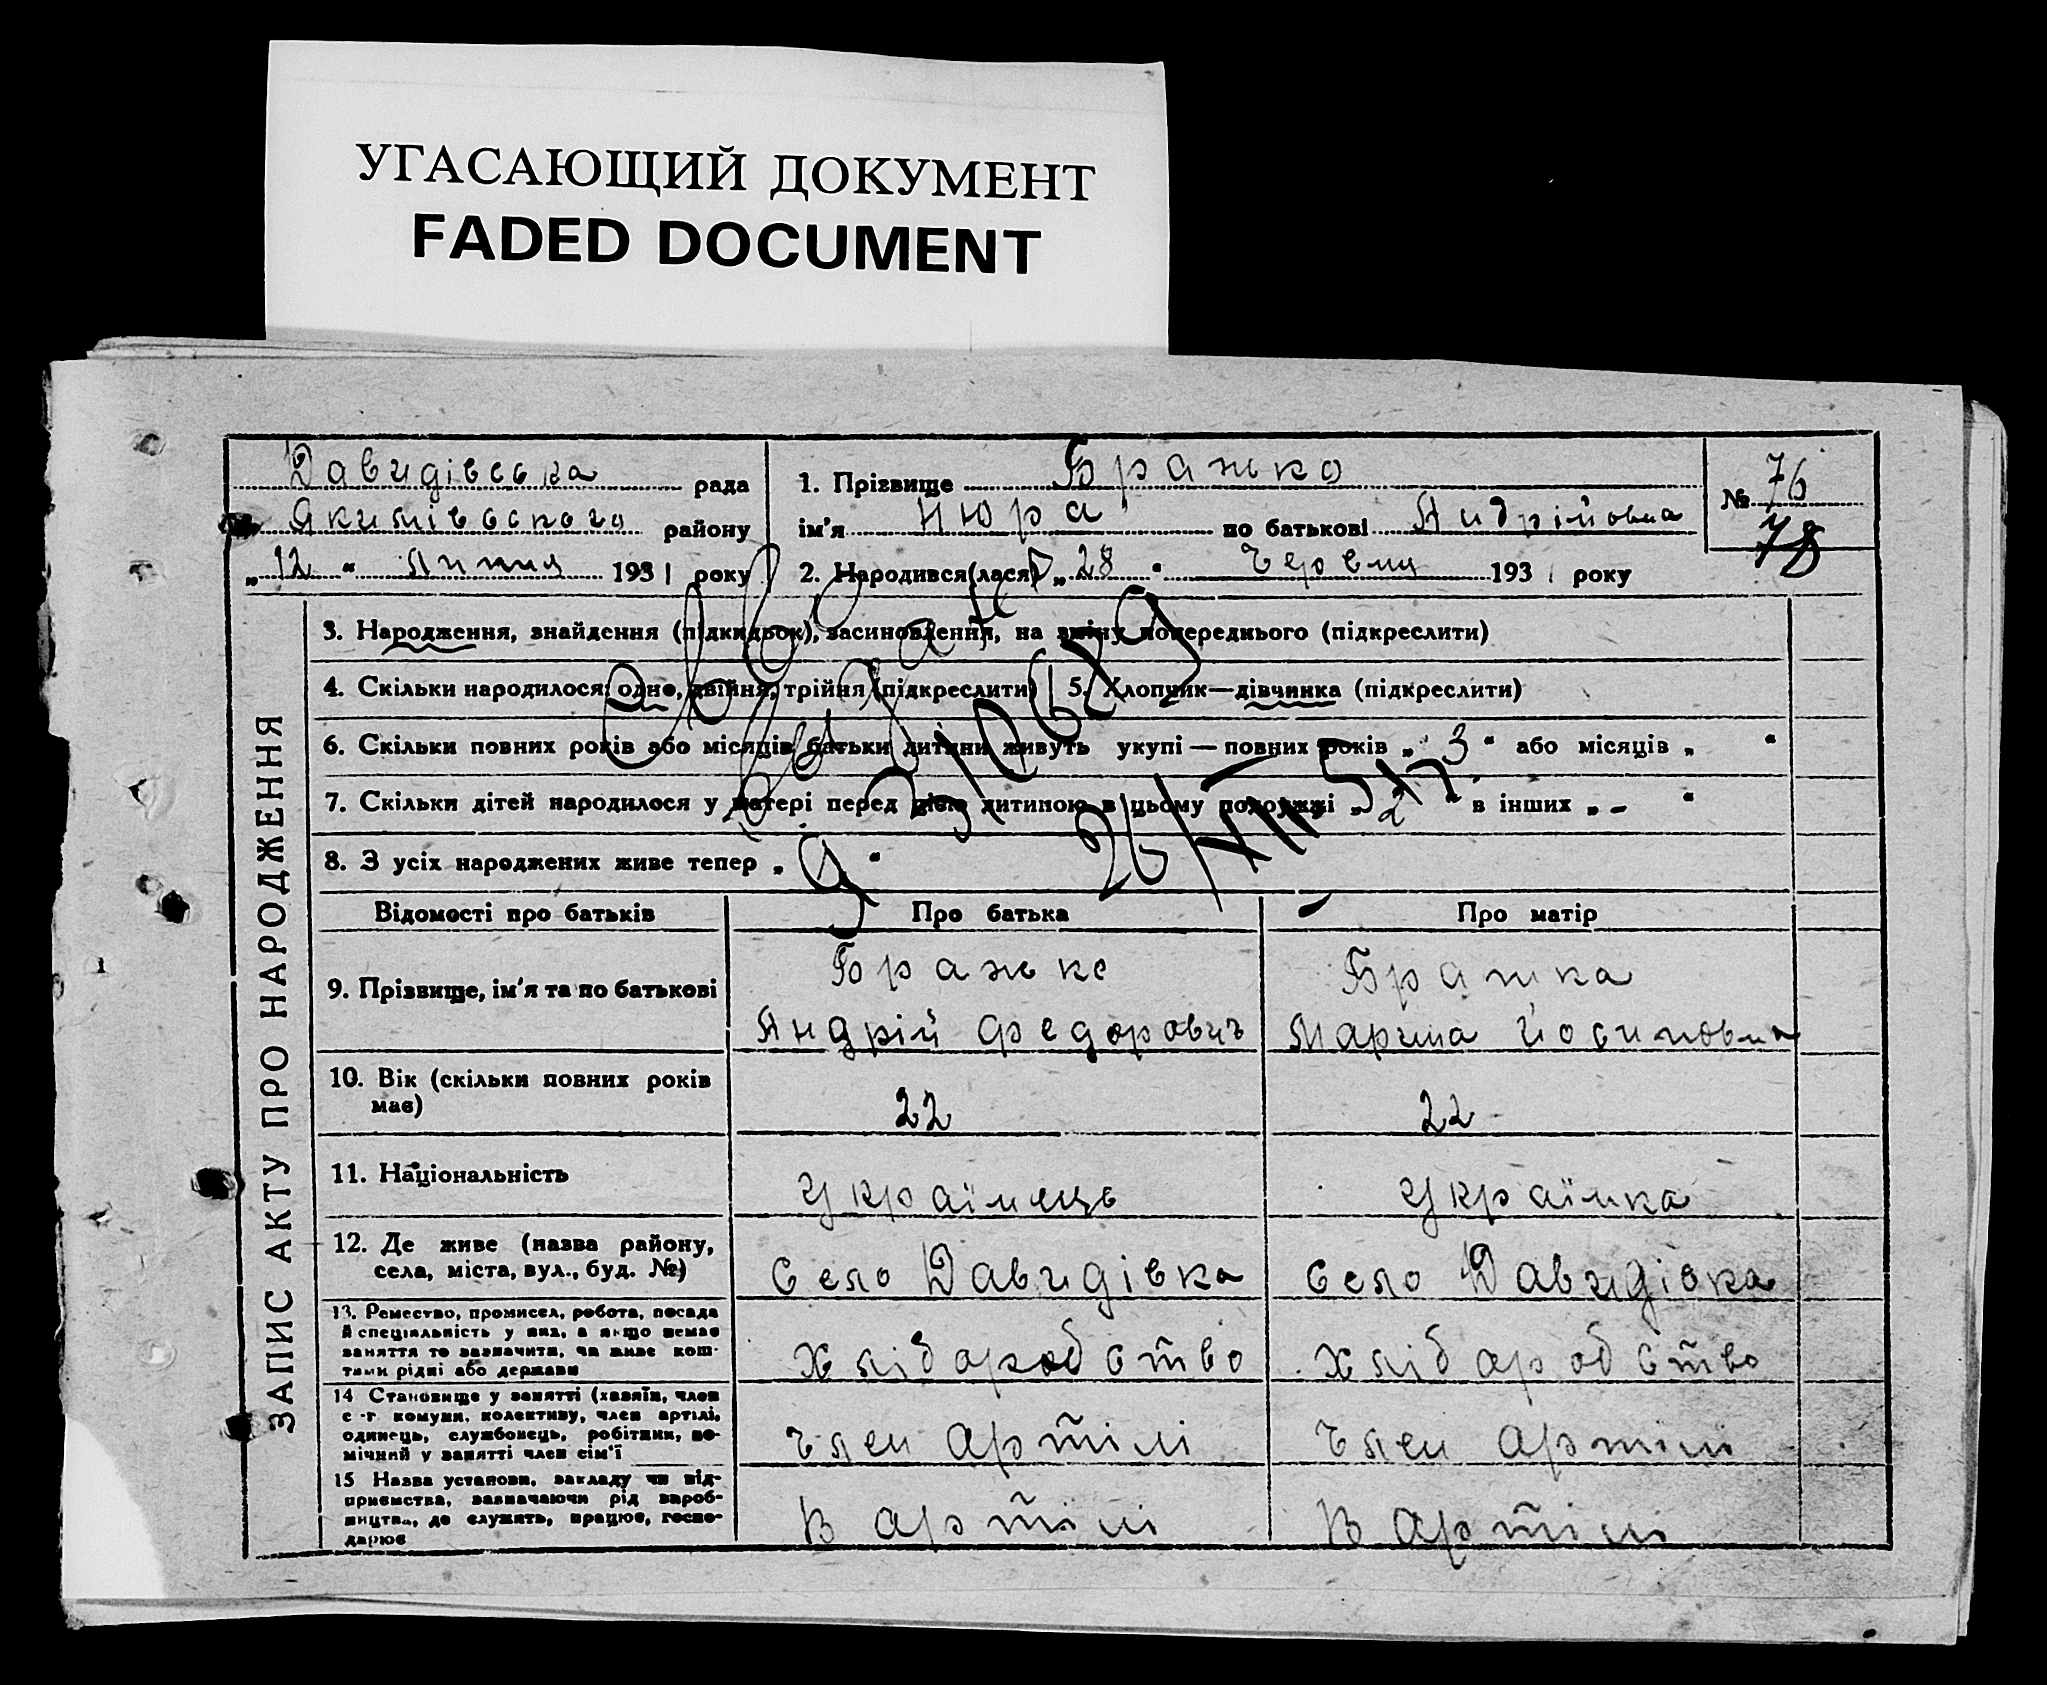 УГАСАЮЩИЙ ДОКУМЕНТ
FADED DOCUMENT
Давидівська рада
Якимівського району
„12“ липня 1931 року
1. Прізвище Бражко
ім'я Нюра по батькові Андрійовна
2. Народився(лася) „28“ червня 1931 року
№ 76
78
ЗАПИС АКТУ ПРО НАРОДЖЕННЯ
3. Народження, знайдення (підкидьок), засиновлення, на зміну попереднього (підкреслити)
4. Скільки народилося: одне, двійня, трійня (підкреслити) 5. Хлопчик—дівчинка (підкреслити)
6. Скільки повних років або місяців батьки дитини живуть укупі — повних років „ 3 “ або місяців „ “
7. Скільки дітей народилося у матері перед цією дитиною в цьому подружжі „ 2 “ в інших „ - “
8. З усіх народжених живе тепер „ “
Відомості про батьків Про батька Про матір
9. Прізвище, ім'я та по батькові
Бражко
Андрій Федорович
Бражка
Марина Йосиповна
10. Вік (скільки повних років має)
22 22
11. Національність
Українець Українка
12. Де живе (назва району, села, міста, вул., буд. №)
Село Давидівка Село Давидівка
13. Ремество, промисел, робота, посада
й спеціяльність у них, а якщо немає
заняття то зазначити, чи живе кош-
тами рідні або держави
Хліборобство Хліборобство
14 Становище у занятті (хазяїн, член
с-г комуни, колективу, член артілі,
одинець, службовець, робітник, по-
мічний у занятті член сім'ї
член артілі член артілі
15 Назва установи, закладу чи під-
приємства, зазначаючи рід вироб-
ництва, де служить, працює, госпо-
дарює
В артілі В артілі